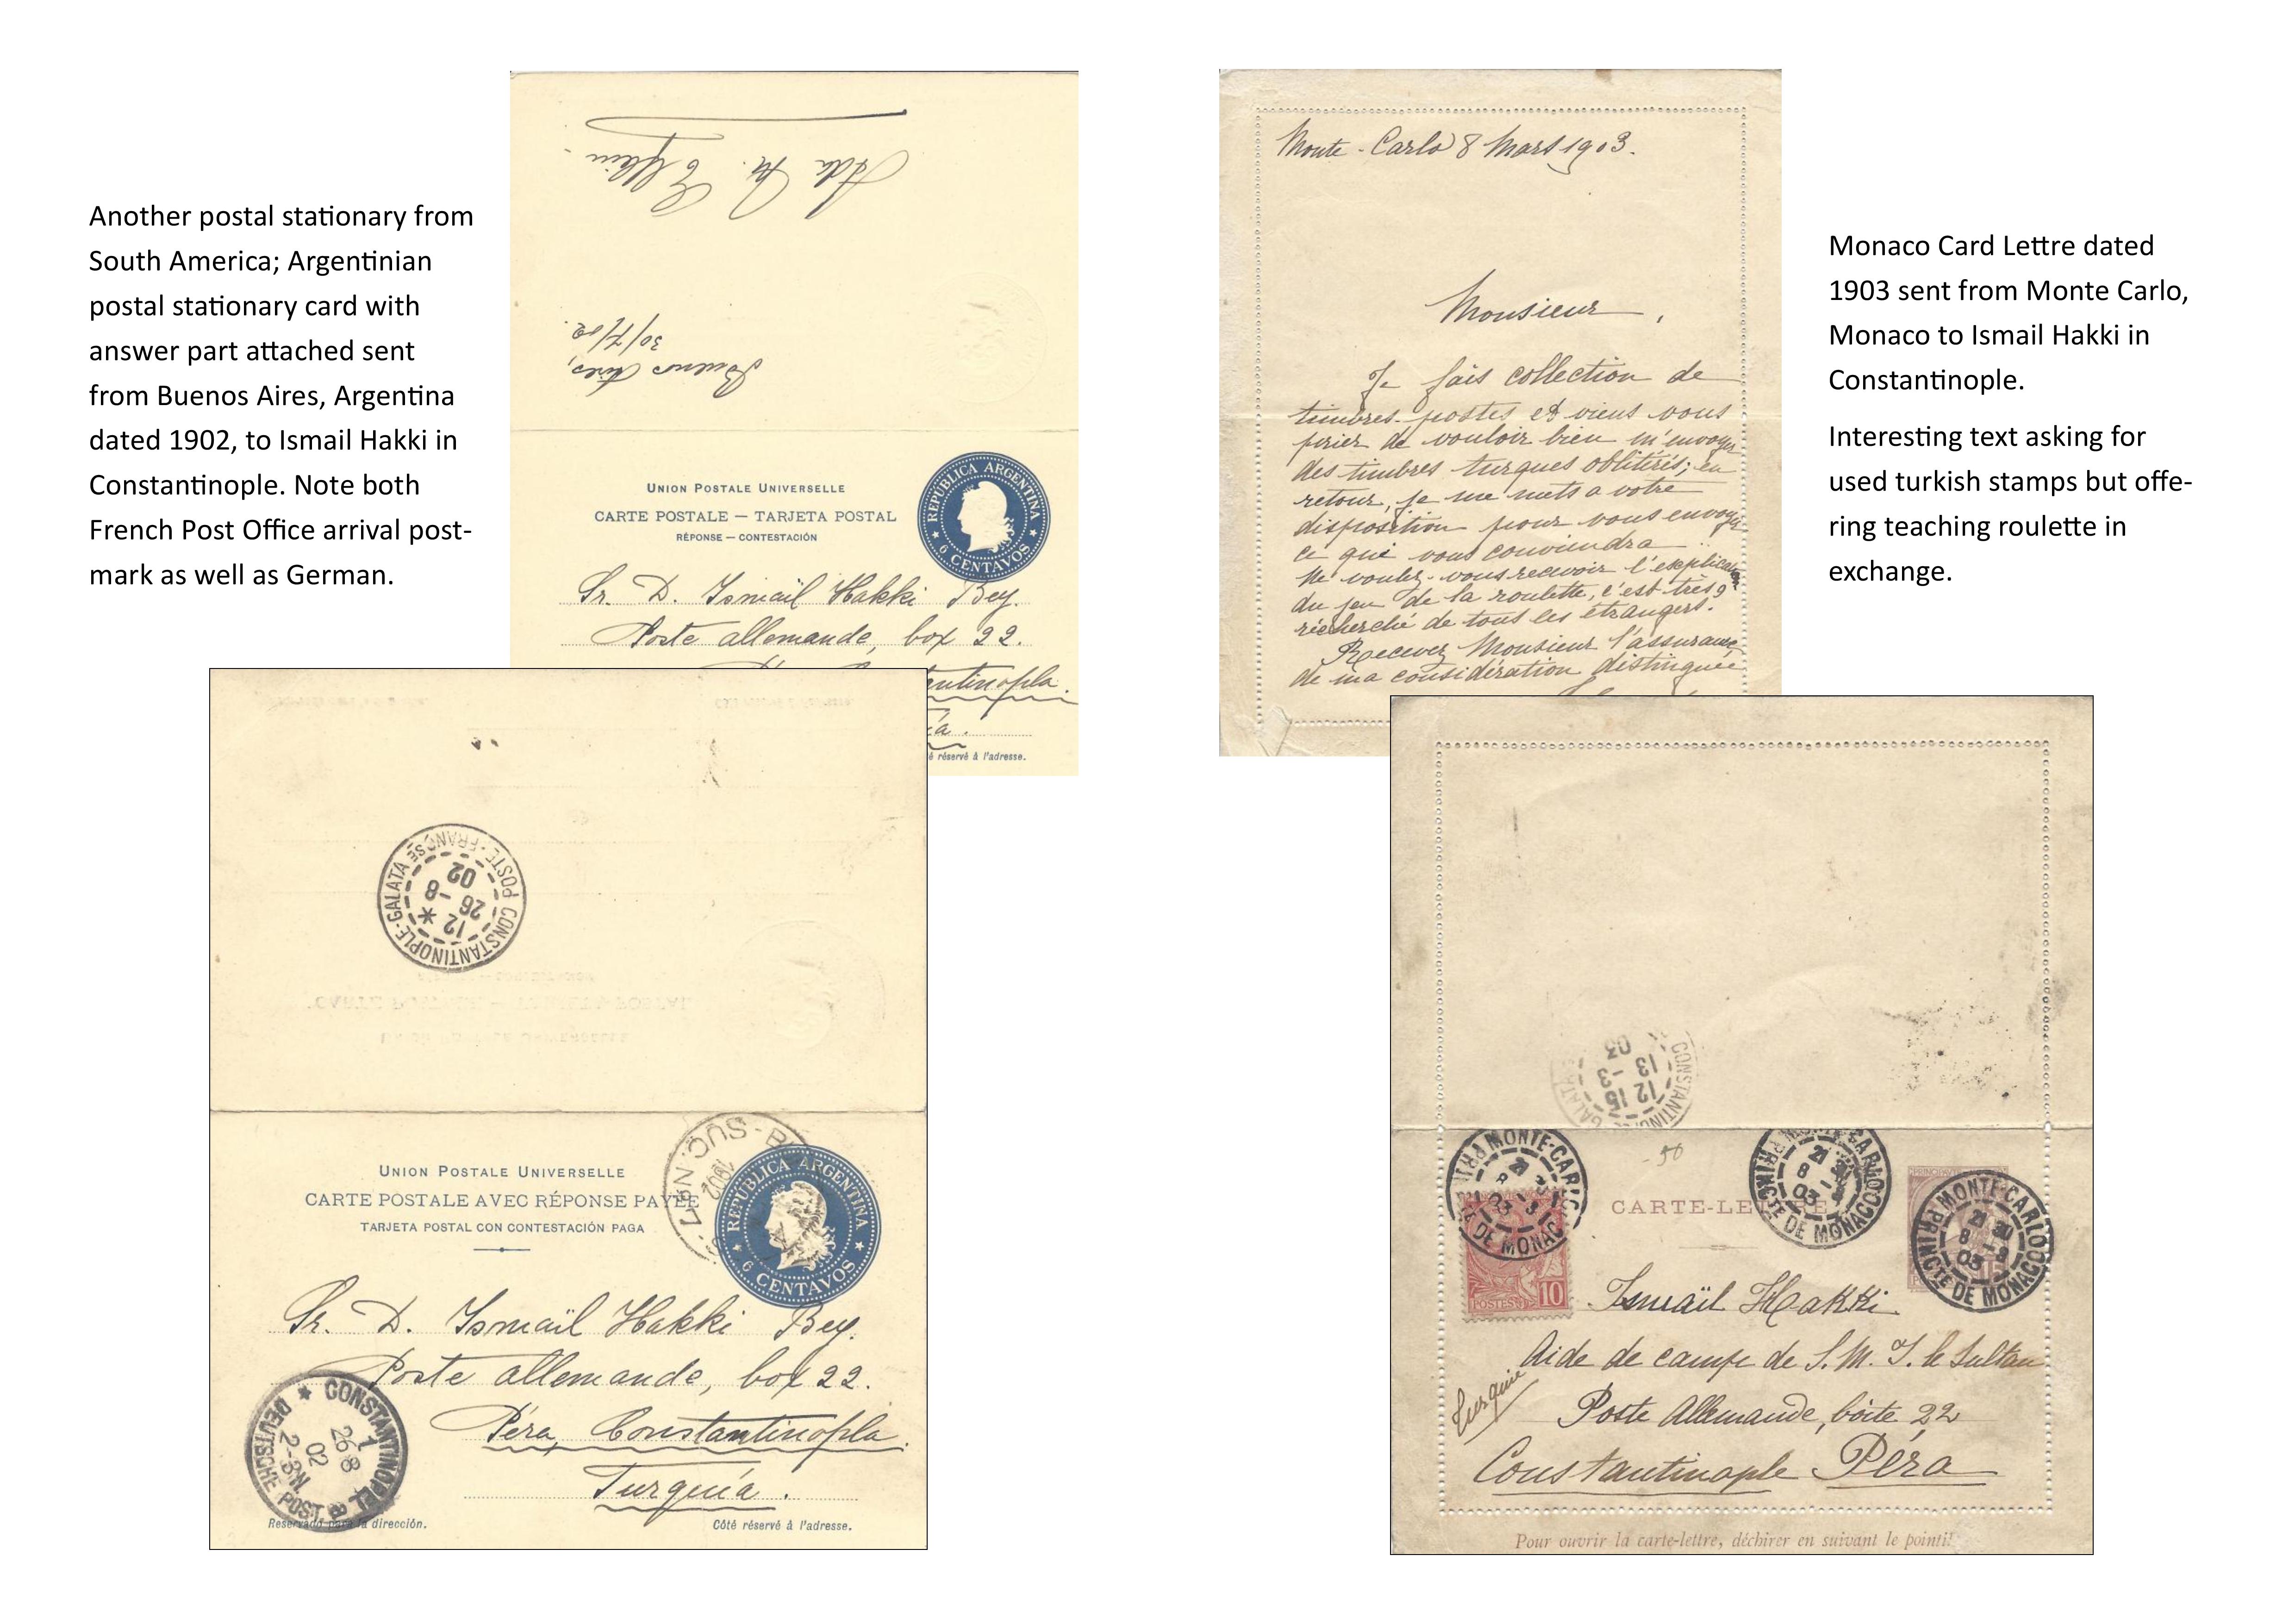 Another postal stationary from
South America; Argentinian
postal stationary card with
answer part attached sent
from Buenos Aires, Argentina
dated 1902, to Ismail Hakki in
Constantinople. Note both
French Post Office arrival post-
mark as well as German.
Buenos Aires,
30/7/02.
UNION POSTALE UNIVERSELLE
CARTE POSTALE — TARJETA POSTAL
RÉPONSE — CONTESTACIÓN
REPÚBLICA ARGENTINA
6 CENTAVOS
Sr. D. Ismaïl Hakki Bey.
Poste allemande, box 22.
é réservé à l'adresse.
CONSTANTINOPLE-GALATA
POSTE FRANÇSE
12
26 -8
02
UNION POSTALE UNIVERSELLE
CARTE POSTALE AVEC RÉPONSE PAYÉE
TARJETA POSTAL CON CONTESTACIÓN PAGA
REPÚBLICA ARGENTINA
6 CENTAVOS
1902
Sr. D. Ismaïl Hakki Bey.
Poste allemande, box 22.
Péra, Constantinopla.
Turquía.
CONSTANTINOPEL 1
26 8
02
2-3N.
DEUTSCHE POST a
Reservado para la dirección.
Côté réservé à l'adresse.
Monte-Carlo 8 Mars 1903.
Monsieur,
Je fais collection de
timbres-postes et viens vous
prier de vouloir bien m'envoyer
des timbres turques oblitérés; en
retour, je me mets a votre
disposition pour vous envoyer
ce qui vous conviendra
Ne voulez-vous recevoir l'explication
du jeu de la roulette, c'est très
récherché de tous les étrangers.
Recevez Monsieur l'assurance
de ma considération distinguée
Monaco Card Lettre dated
1903 sent from Monte Carlo,
Monaco to Ismail Hakki in
Constantinople.
Interesting text asking for
used turkish stamps but offe-
ring teaching roulette in
exchange.
CONSTANTINOPLE GALATA
12 15
13 -3
03
MONTE-CARLO
PRINCTE DE MONACO
MONTE-CARLO
PRINCTE DE MONACO
MONTE-CARLO
PRINCTE DE MONACO
CARTE-LETTRE
POSTES
10
15
Ismaïl Hakki
Aide de camp de S. M. I. le Sultan
Turquie
Poste Allemande, boite 22
Constantinople Péra
Pour ouvrir la carte-lettre, déchirer en suivant le pointillé